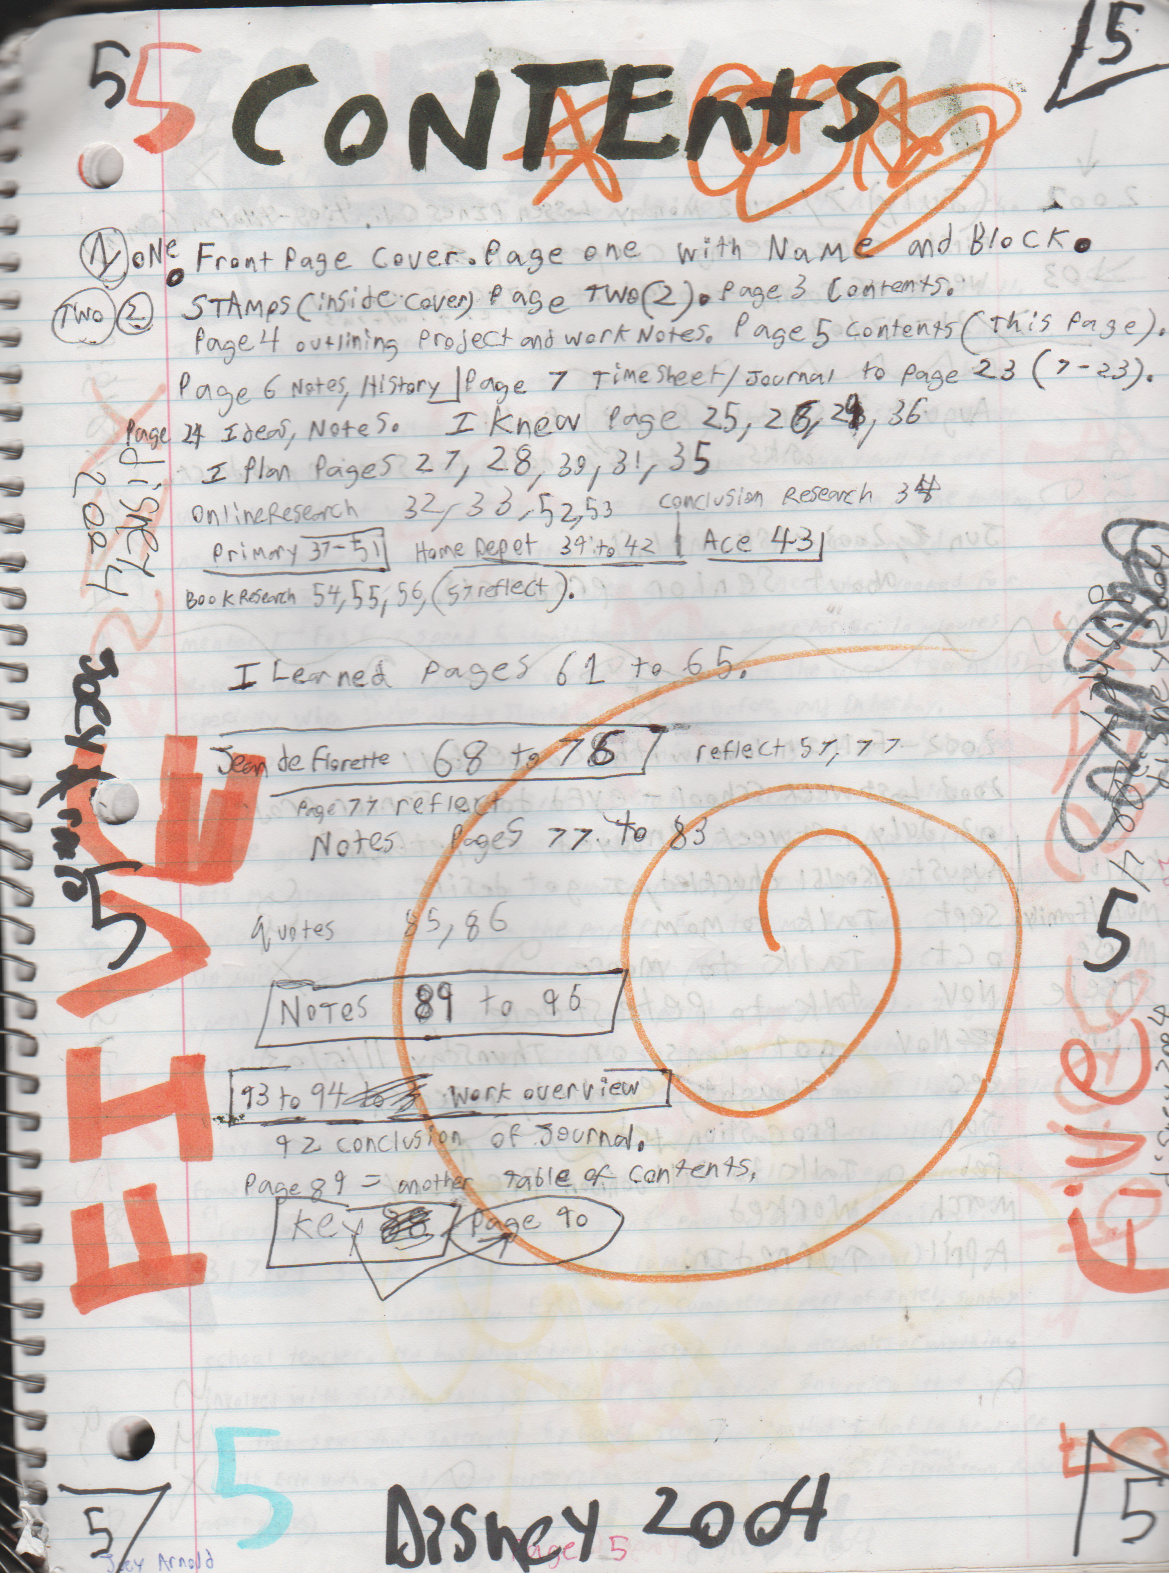 5 5 CONTEntS 5
1 ONE. Front Page Cover. Page one with Name and Block.
TWO 2 STAMPS (inside cover) Page TWO (2). Page 3 Contents.
Page 4 outlining Project and work Notes. Page 5 contents (this page).
Page 6 Notes, History | Page 7 Time Sheet/Journal to page 23 (7-23).
Page 24 Ideas, Notes. I Knew Page 25, 26, 29, 36
I Plan Pages 27, 28, 30, 31, 35
Online Research 32, 33, 52, 53 Conclusion Research 34
Primary 37-51 Home Depot 39 to 42 Ace 43
Book Research 54, 55, 56, (57 reflect).
I Learned pages 61 to 65.
Jean de Florette 68 to 76 reflect 57, 77
Page 77 reflect
Notes Pages 77 to 83
Quotes 85, 86
Notes 89 to 96
93 to 94 Work overview
92 conclusion of Journal.
Page 89 = another table of contents.
Key Page 90
Disney 2004
Joey
5
FIVE
5
Disney 2004
FIVE
5
5
5
5
5
Disney 2004
Page 5
Joey Arnold